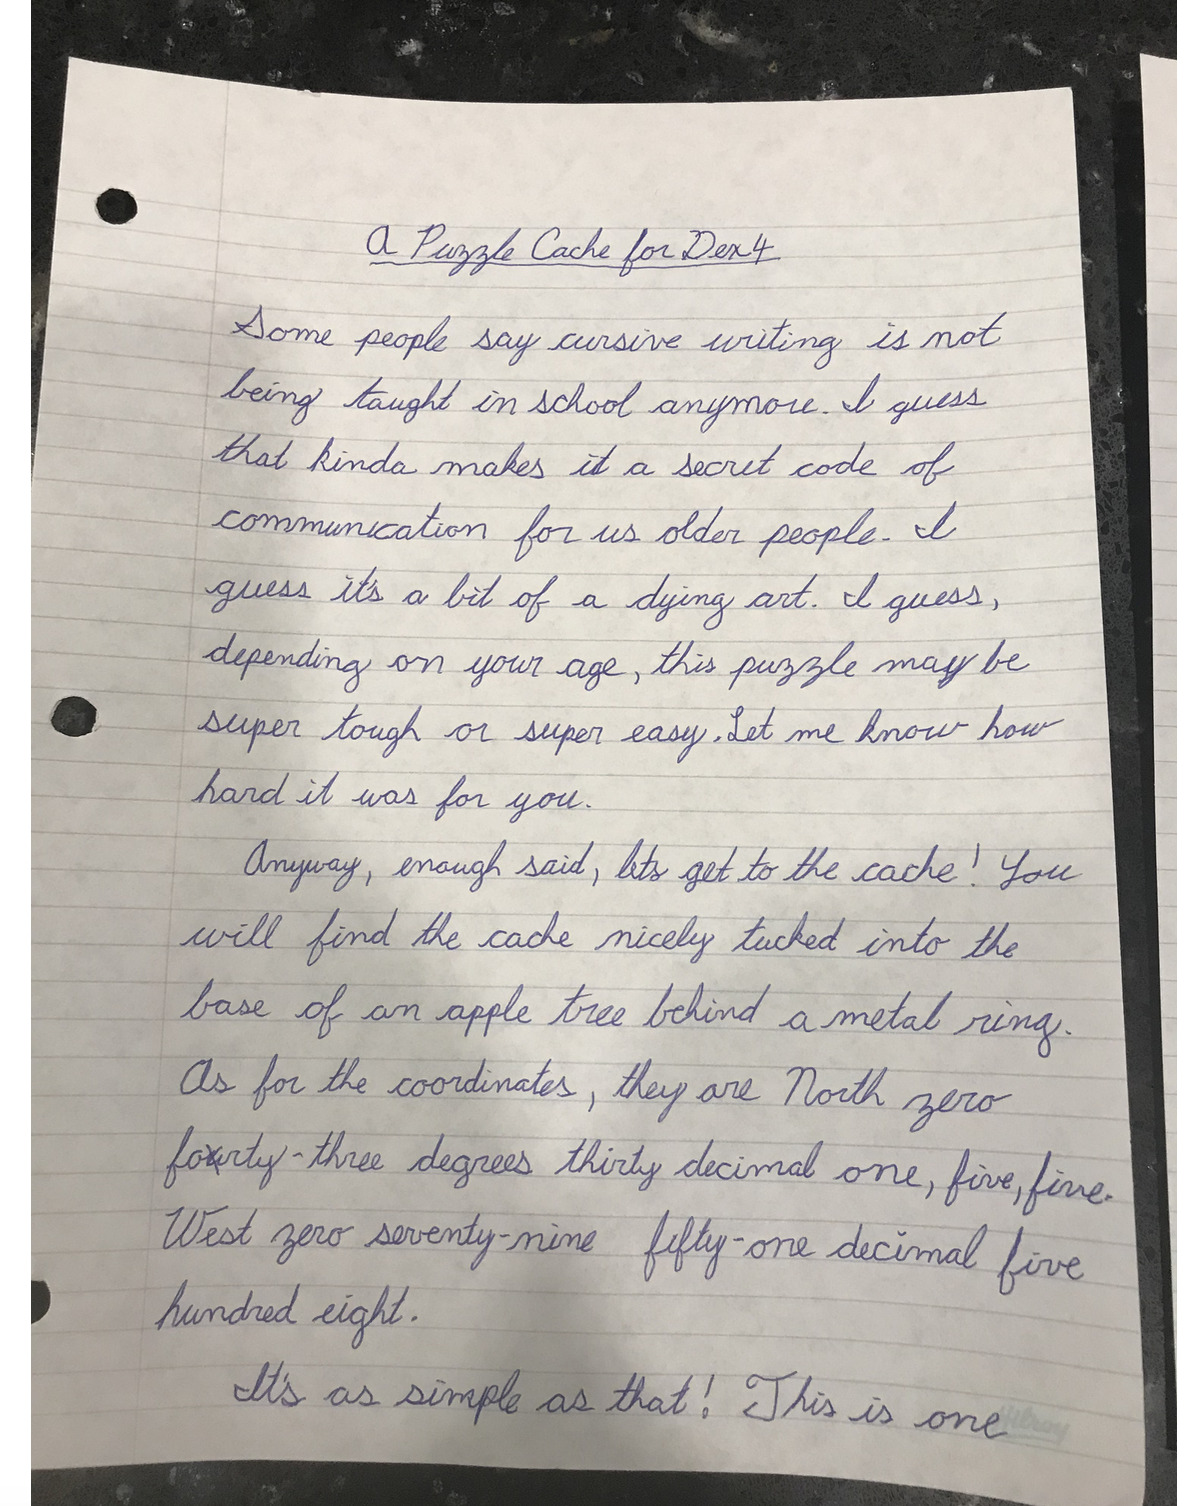 A Puzzle Cache for Dex4
Some people say cursive writing is not
being taught in school anymore. I guess
that kinda makes it a secret code of
communication for us older people. I
guess it's a bit of a dying art. I guess,
depending on your age, this puzzle may be
super tough or super easy. Let me know how
hard it was for you.
Anyway, enough said, lets get to the cache! You
will find the cache nicely tucked into the
base of an apple tree behind a metal ring.
As for the coordinates, they are North zero
fourty-three degrees thirty decimal one, five, five.
West zero seventy-nine fifty-one decimal five
hundred eight.
It's as simple as that! This is one
Hilroy